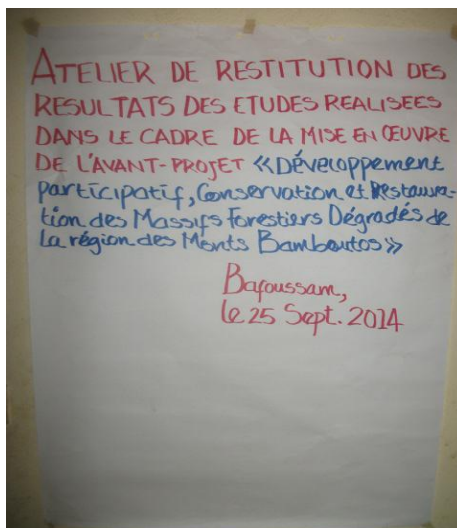 ATELIER DE RESTITUTION DES
RESULTATS DES ETUDES REALISEES
DANS LE CADRE DE LA MISE EN ŒUVRE
DE L'AVANT-PROJET «Développement
participatif, Conservation et Restaura-
tion des Massifs Forestiers Dégradés de
La région des Monts Bamboutos»
Bafoussam,
le 25 Sept. 2014